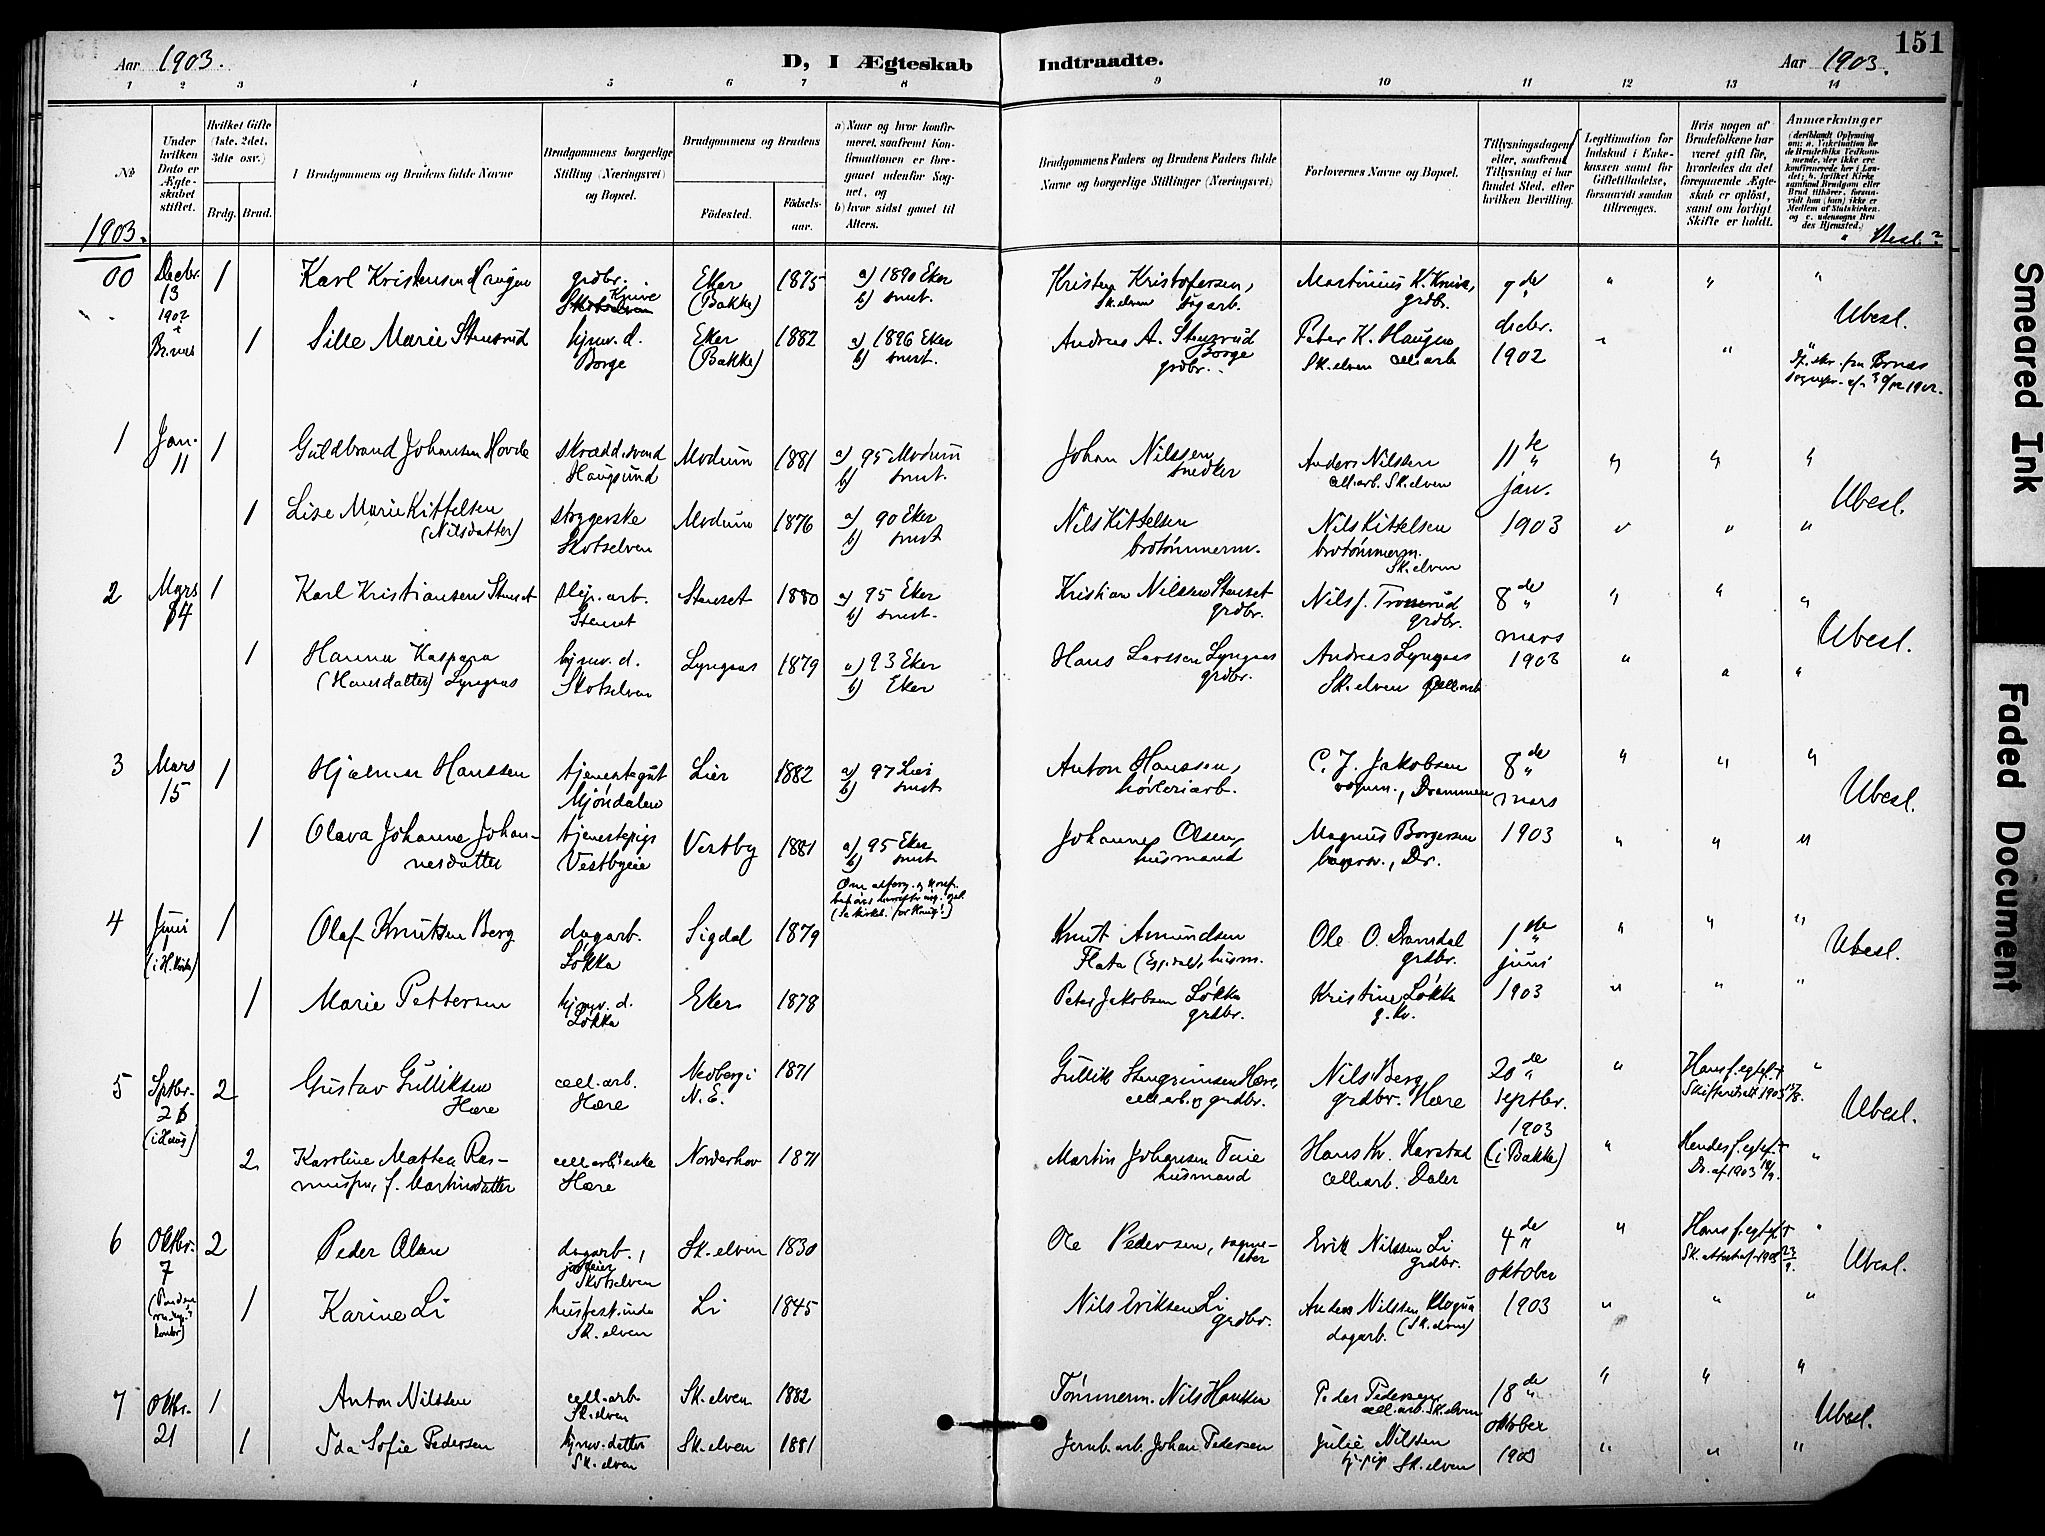 151
Aar 1903.
D, I Ægteskab Indtraadte.
Aar 1903.
1 2 3 4 5 6 7 8 9 10 11 12 13 14
No
Under hvilken Dato er Ægteskabet stiftet.
Hvilket Gifte (1ste, 2det, 3die osv.)
Brdg. Brud.
Brudgommens og Brudens fulde Navne
Brudgommens borgerlige Stilling (Næringsvei) og Bopæl.
Brudgommens og Brudens
Fødested.
Fødselsaar.
a) Naar og hvor konfirmeret, saafremt Konfirmationen er foregaaet udenfor Sognet, og
b) hvor sidst gaaet til Alters.
Brudgommens Faders og Brudens Faders fulde Navne og borgerlige Stillinger (Næringsvei)
Forlovernes Navne og Bopæl.
Tillysningsdagen, eller, saafremt Tillysning ei har fundet Sted, efter hvilken Bevilling.
Legitimation for Indskud i Enkekassen samt for Giftetilladelse, forsaavidt saadan tiltrænges.
Hvis nogen af Brudefolkene har været gift før, hvorledes da det foregaaende Ægteskab er opløst, samt om lovligt Skifte er holdt.
Anmærkninger
1903.
00 Decbr. 13 1902 i 1 Karl Kristensen Haugen grdbr. Knive Skotselven Eker (Bakke) 1875 a) 1890 Eker b) smst. Kristen Kristofersen, Sk.elven sagarb. Martinius K. Knive, grdbr. 7de " " "
1 Sille Marie Stensrud hjmv. d. Borge Eker (Bakke) 1882 a) 1896 Eker b) smst. Andreas A. Stensrud Borge grdbr. Peter K. Haugen Sk.elven cell.arb. decbr. 1902 " " Ubesl.
1 Jan. 11 1 Guldbrand Johansen Hovde skrædd.svend Haugsund Modum 1881 a) 95 Modum b) smst. Johan Nilssen snedker Anders Nilssen cell.arb. Sk.elven 11te " " "
1 Lise Marie Kittelsen (Nilsdatter) strygerske Skotselven Modum 1876 a) 90 Eker b) smst Nils Kittelsen brotømmerm. Nils Kittelsen brotømmerm. Sk.elven jan. 1903 " " " Ubesl.
2 Mars 14 1 Karl Kristiansen Stenset slip.arb. Stenset Stenset 1880 a) 95 Eker b) smst. Kristian Nilssen Stenset grdbr. Nils J. Tronsrud grdbr. 8de " " "
1 Hanna Kaspara (Hansdatter) Lyngaas hjmv. d. Skotselven Lyngaas 1879 a) 93 Eker b) Eker Hans Larssen Lyngaas grdbr. Andreas Lyngaas Sk.elven cell.arb mars 1903 " " " Ubesl.
3 Mars 15 1 Hjalmar Hanssen tjenestegut Mjøndalen Lier 1882 a) 97 Lier b) smst Anton Hanssen, høvleriarb. C. J. Jakobsen vognm., Drammen 8de " " "
1 Olava Johanne Johannesdatter tjenestepige Vestbyeie Vestby 1881 a) 95 Eker b) smst. Johannes Olsen, husmand Magnus Borgersen Dr. mars 1903 " " " Ubesl.
4 Juni 1 Olaf Knutsen Berg dagarb. Løkka Sigdal 1879 Knut Amundsen Flata husm. Ole O. Dramdal grdbr. 1ste " " "
1 Marie Pettersen hjmv. d. Løkka Eker 1878 Peter Jakobsen Løkka grdbr. Kristine Løkka g. kv. juni 1903 " " " Ubesl.
5 Sptbr. 26 2 Gustav Gulliksen Hære cell.arb. Hære Nedberg i N. E. 1871 Gullik Stengrimsen Hære, cell.arb. og grdbr. Nils Berg grdbr. Hære 20de " Hans f. egtef. † "
2 Karoline Mattea Rasmussen, f. Martinsdatter cell.arb.enke Hære Norderhov 1871 Martin Johansen husmand Hans Kr. Harstad cell.arb. Daler septbr. 1903 (i Bakke) " Hendes f. egtef. † " Ubesl.
6 Oktbr. 7 2 Peder Olsen dagarb., Skotselven Sk.elven 1830 Ole Pedersen, sagmester Erik Nilssen Li grdbr. 4de " Hans f. egtef. † "
1 Karine Li Sk.elven Li 1845 Nils Eriksen Li grdbr. Anders Nilssen dagarb. (Sk.elven) oktober 1903 " " " Ubesl.
7 Oktbr. 21 1 Anton Nilssen cell.arb. Sk.elven Sk.elven 1882 Tømmerm. Nils Hanssen Peder Pedersen cell.arb. Sk.elven 18de " " "
1 Ida Sofie Pedersen hjmv. datter Sk.elven Sk.elven 1881 Jernb.arb. Johan Pedersen Julie Nilssen Sk.elven oktober 1903 " " " Ubesl.
Smeared Ink
Faded Document